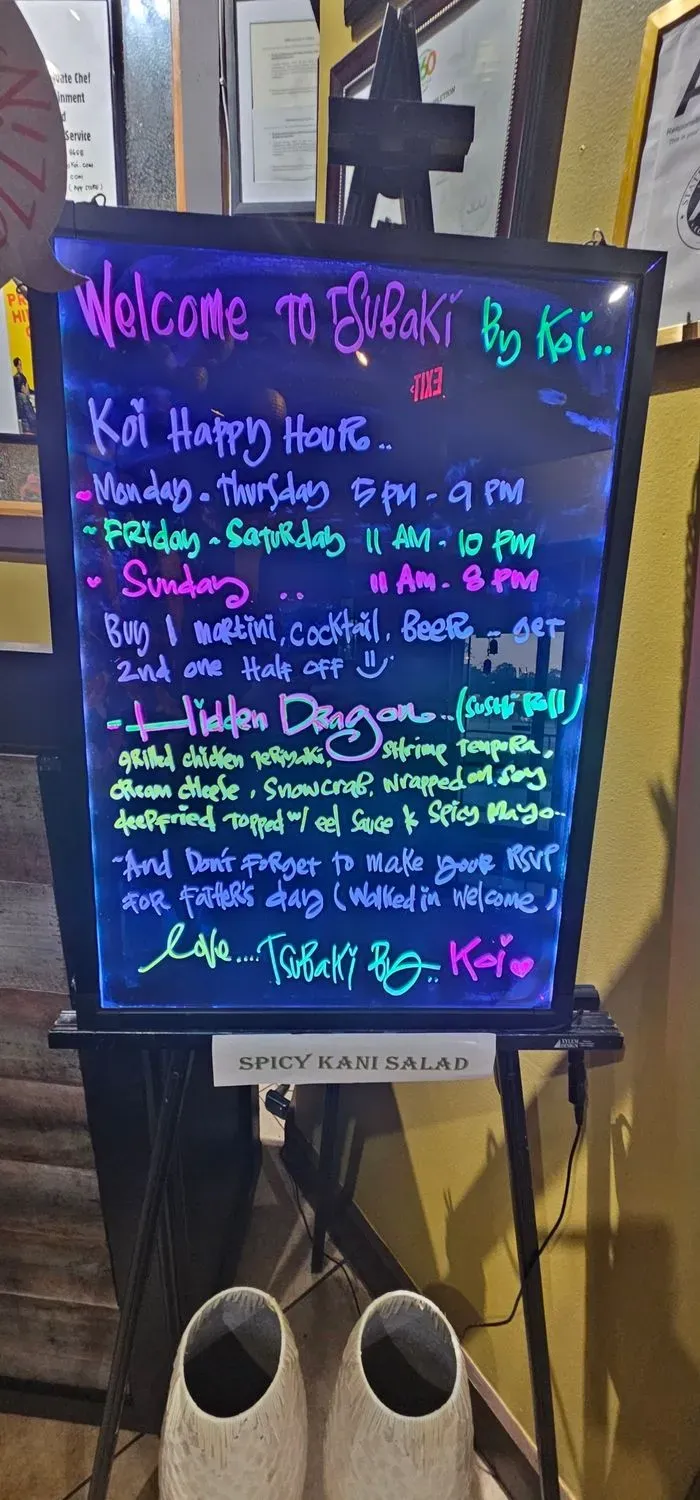 uate Chef
inment
d
Service
Koi.com
com
(App Store)
Welcome To Tsubaki By Koi..
EXIT
Koi Happy Hour..
Monday - Thursday 5 PM - 9 PM
~ Friday ~ Saturday 11 AM - 10 PM
Sunday .. 11 AM - 8 PM
Buy 1 martini, cocktail, Beer .. get
2nd one Half off
- Hidden Dragon.. (Sushi Roll)
grilled chicken teriyaki, shrimp tempura,
cream cheese, snowcrab, wrapped on soy
deepfried topped w/ eel sauce & spicy Mayo..
~And Don't Forget to make your RSVP
For Father's day (Walked in welcome)
Love.... Tsubaki By.. Koi
XYLEM
DESIGN
SPICY KANI SALAD